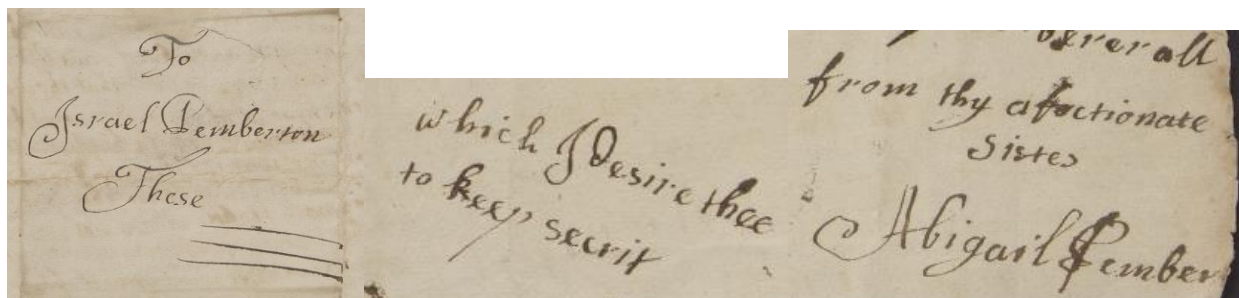 To
Israel Pemberton
These
which I Desire thee
to keep secrit
from thy afectionate
Sister
Abigail Pember